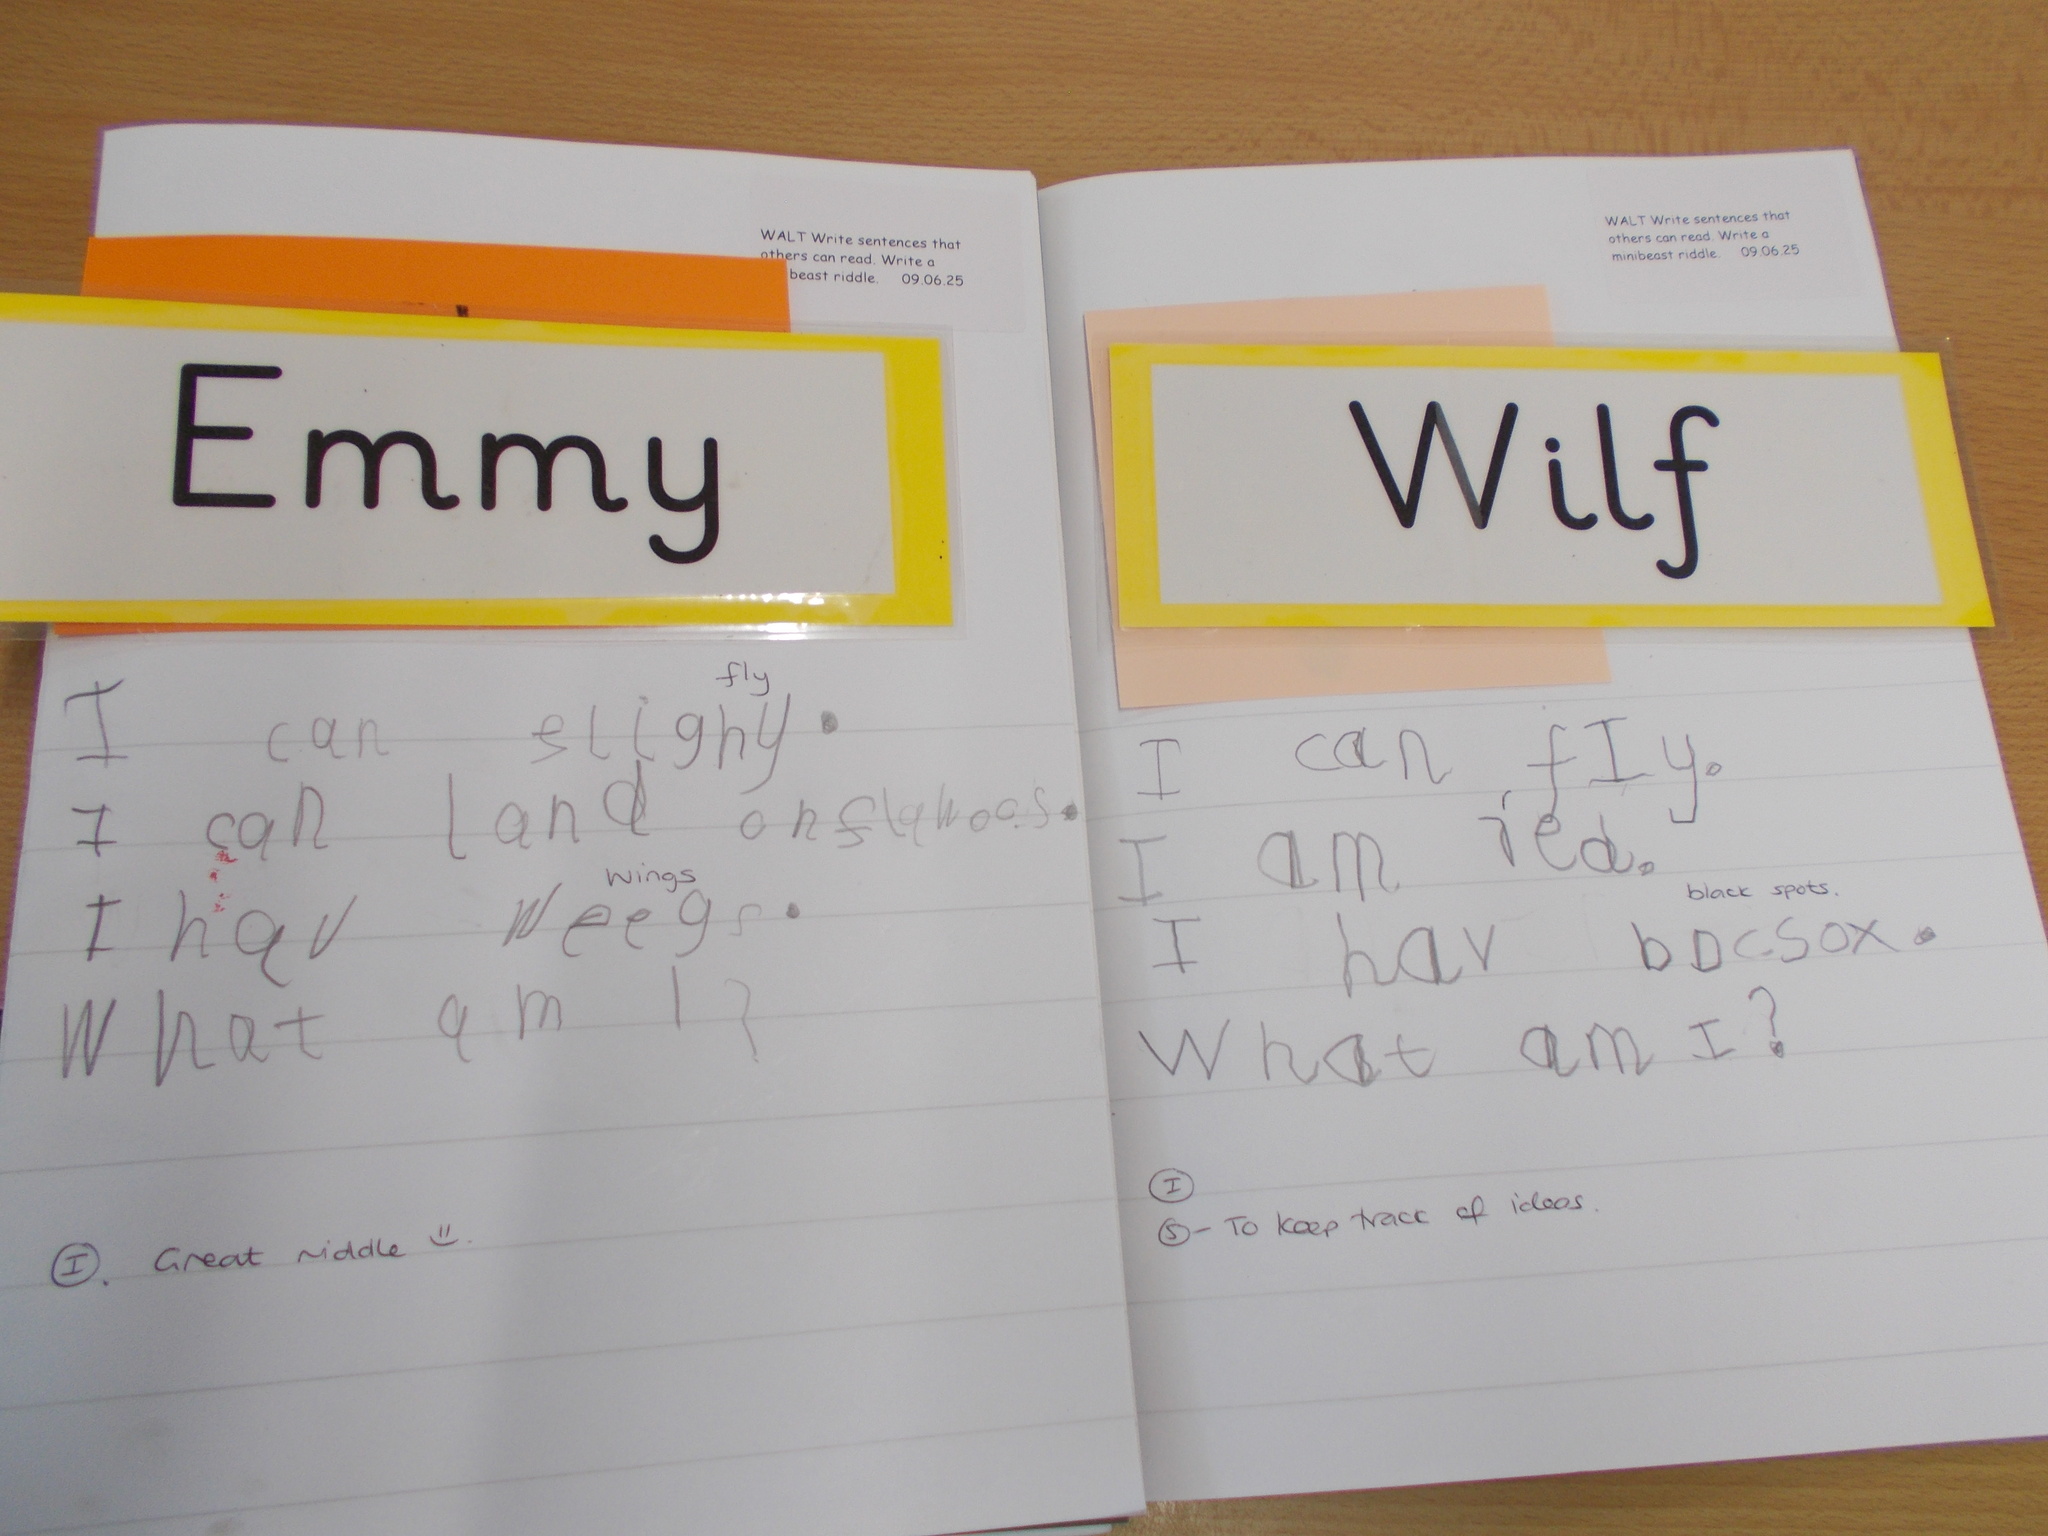 WALT Write sentences that
others can read. Write a
beast riddle. 09.06.25
Emmy
fly
I can slighy.
I can land onflawoas.
wings
I hav weegs.
What am I?
I. Great riddle
WALT Write sentences that
others can read. Write a
minibeast riddle. 09.06.25
Wilf
I can fIy.
I am red.
black spots.
I hav bDcsox.
What am I?
I
S - To keep track of ideas.